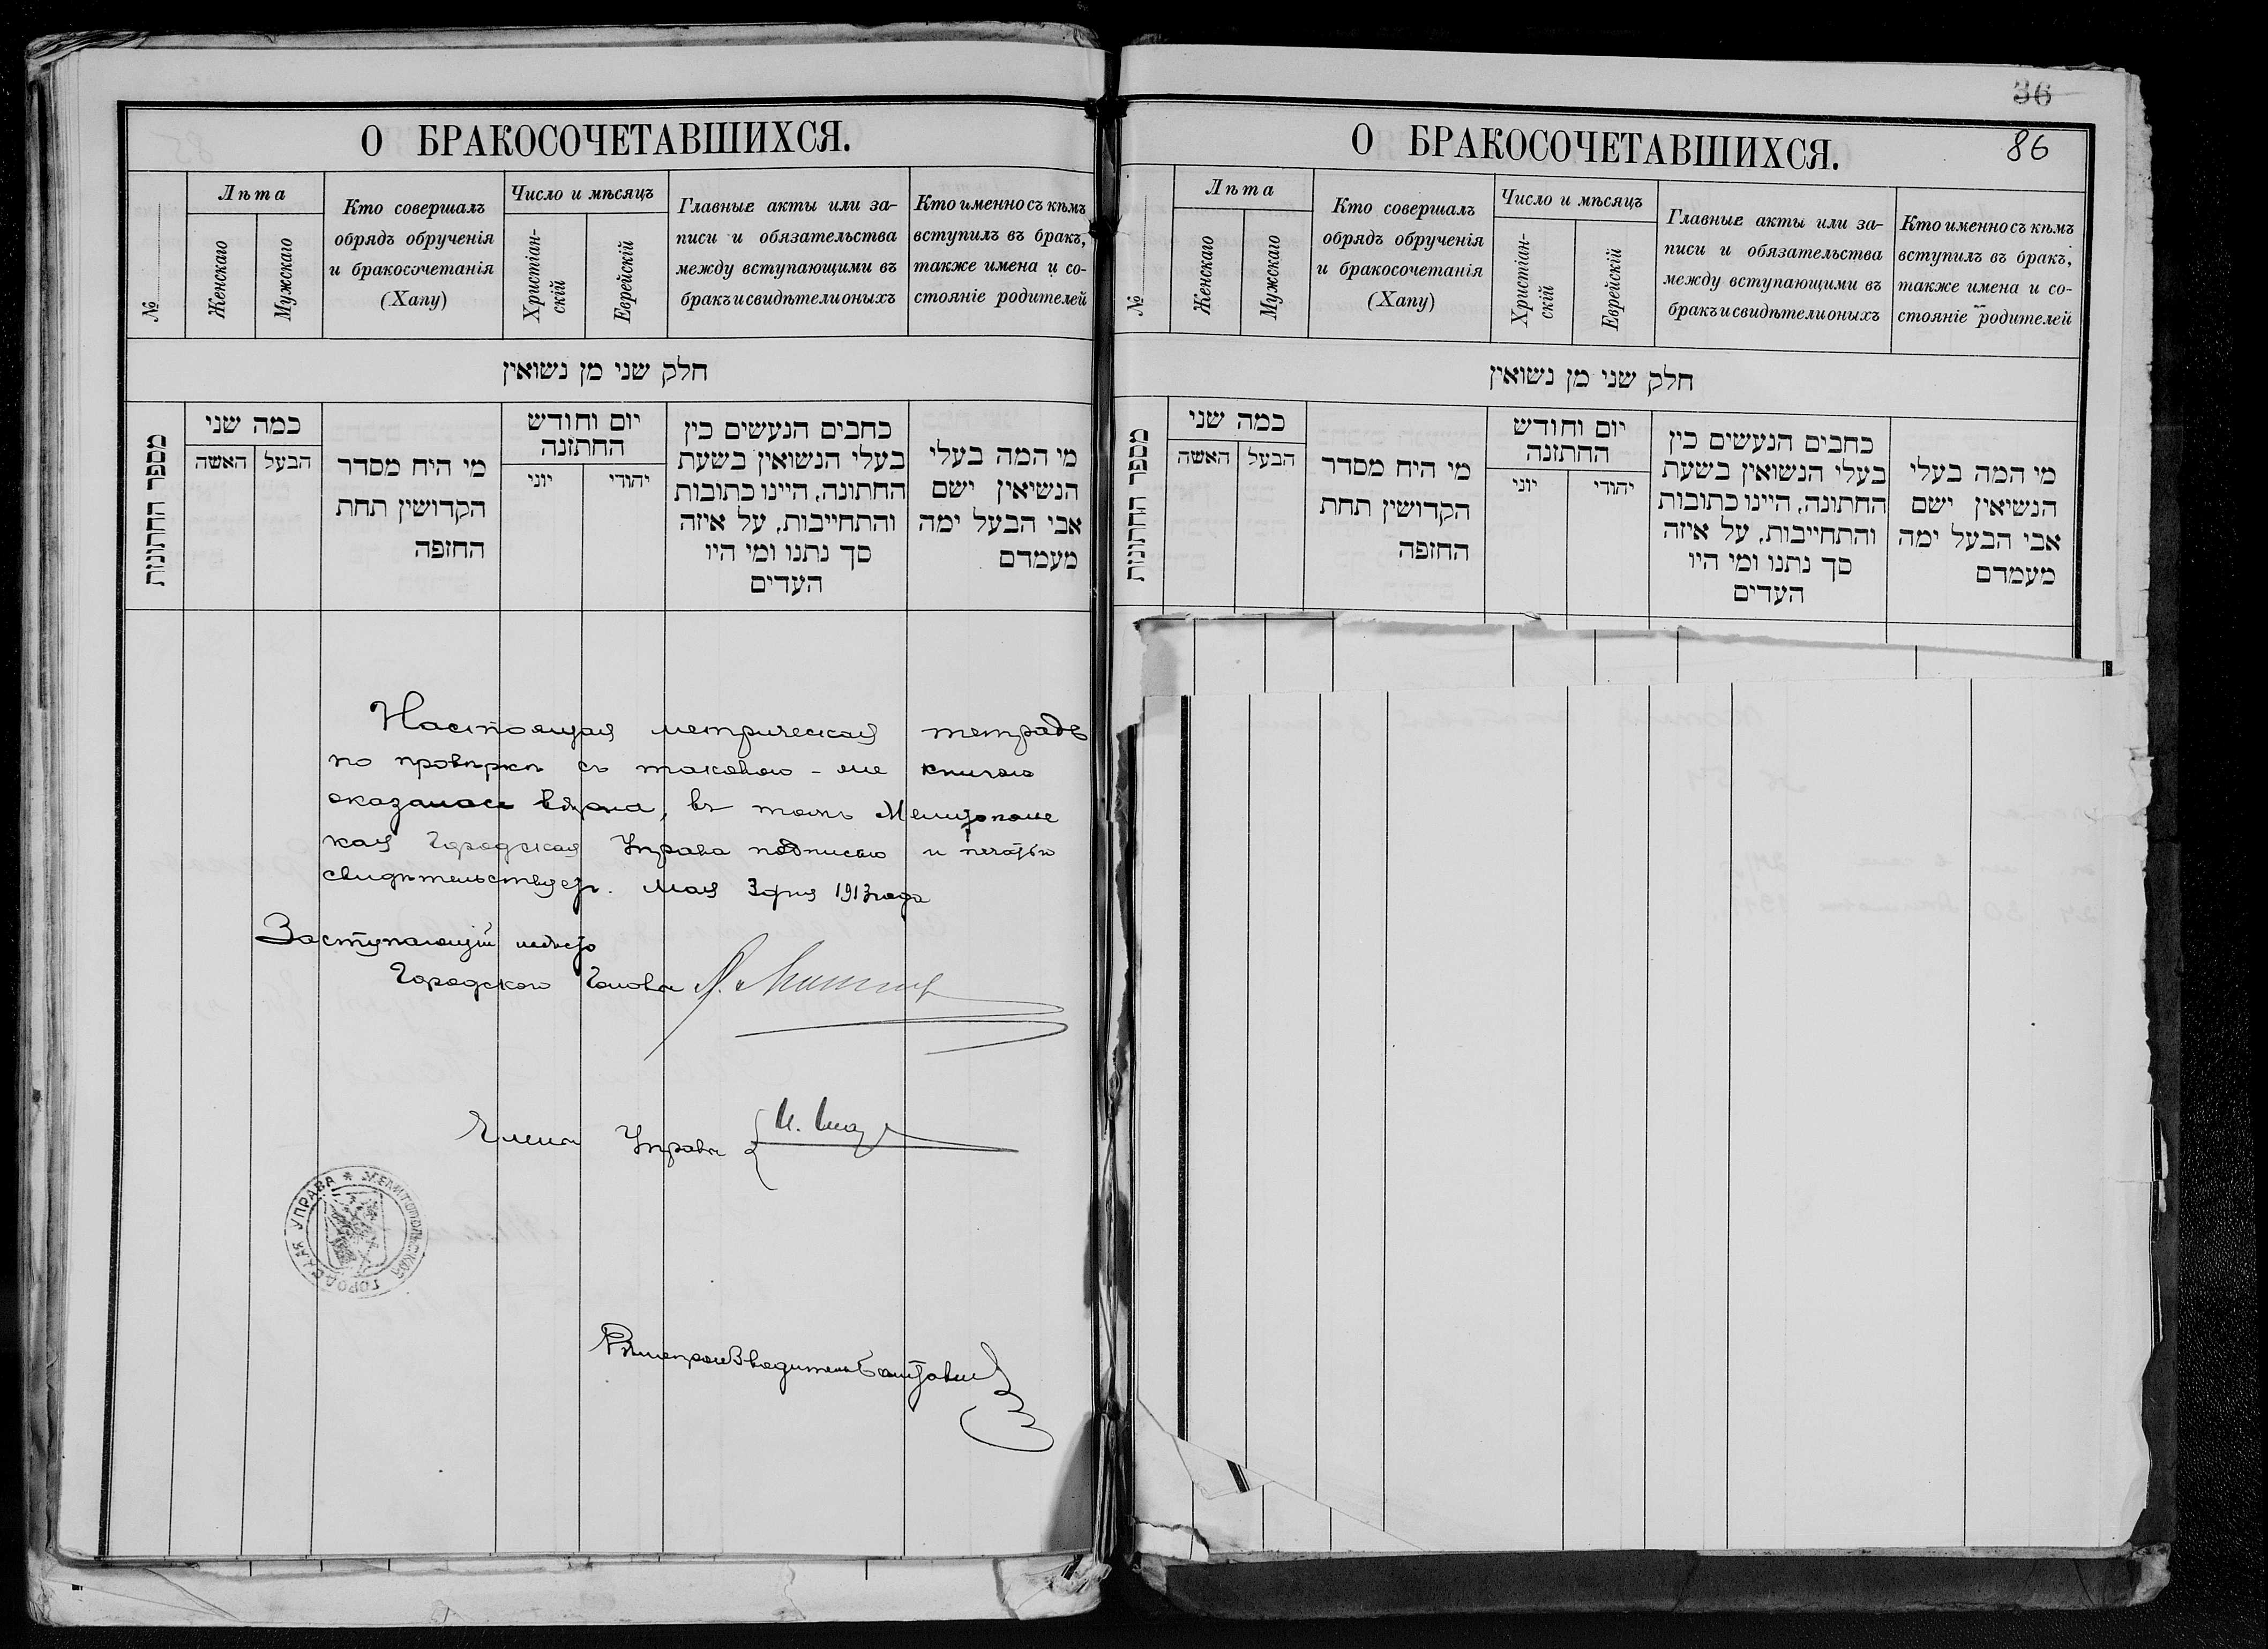 О БРАКОСОЧЕТАВШИХСЯ.
№
Лѣта
Женскаго
Мужскаго
Кто совершалъ
обрядъ обрученія
и бракосочетанія
(Хапу)
Число и мѣсяцъ
Христіан-
скій
Еврейскій
Главные акты или за-
писи и обязательства
между вступающими въ
бракъ и свидѣтели оныхъ
Кто именно съ кѣмъ
вступилъ въ бракъ,
также имена и со-
стояніе родителей
חלק שני מן נשואין
מספר החתונות
כמה שני
האשה
הבעל
מי היח מסדר
הקדושין תחת
החזפה
יום וחודש
החתזנה
יוני
יהודי
כחבים הנעשים כין
בעלי הנשואין בשעת
החתונה, היינו כתובות
והתחייבות, על איזה
סך נתנו ומי היו
העדים
מי המה בעלי
הנשיאין ישם
אבי הבעל ימה
מעמדם
Настоящая метрическая тетрадь
по провѣркѣ съ таковою-же книгою
оказалась вѣрна, въ томъ Мелитополь
кая Городская Управа подписью и печатью
свидѣтельствуетъ. Мая 3 дня 1913 года
Заступающій мѣсто
Городского Головы
Члены Управы
МЕЛИТОПОЛЬСКАЯ ГОРОДСКАЯ УПРАВА
36
86
О БРАКОСОЧЕТАВШИХСЯ.
№
Лѣта
Женскаго
Мужскаго
Кто совершалъ
обрядъ обрученія
и бракосочетанія
(Хапу)
Число и мѣсяцъ
Христіан-
скій
Еврейскій
Главные акты или за-
писи и обязательства
между вступающими въ
бракъ и свидѣтели оныхъ
Кто именно съ кѣмъ
вступилъ въ бракъ,
также имена и со-
стояніе родителей
חלק שני מן נשואין
מספר החתונות
כמה שני
האשה
הבעל
מי היח מסדר
הקדושין תחת
החזפה
יום וחודש
החתזנה
יוני
יהודי
כחבים הנעשים כין
בעלי הנשואין בשעת
החתונה, היינו כתובות
והתחייבות, על איזה
סך נתנו ומי היו
העדים
מי המה בעלי
הנשיאין ישם
אבי הבעל ימה
מעמדם